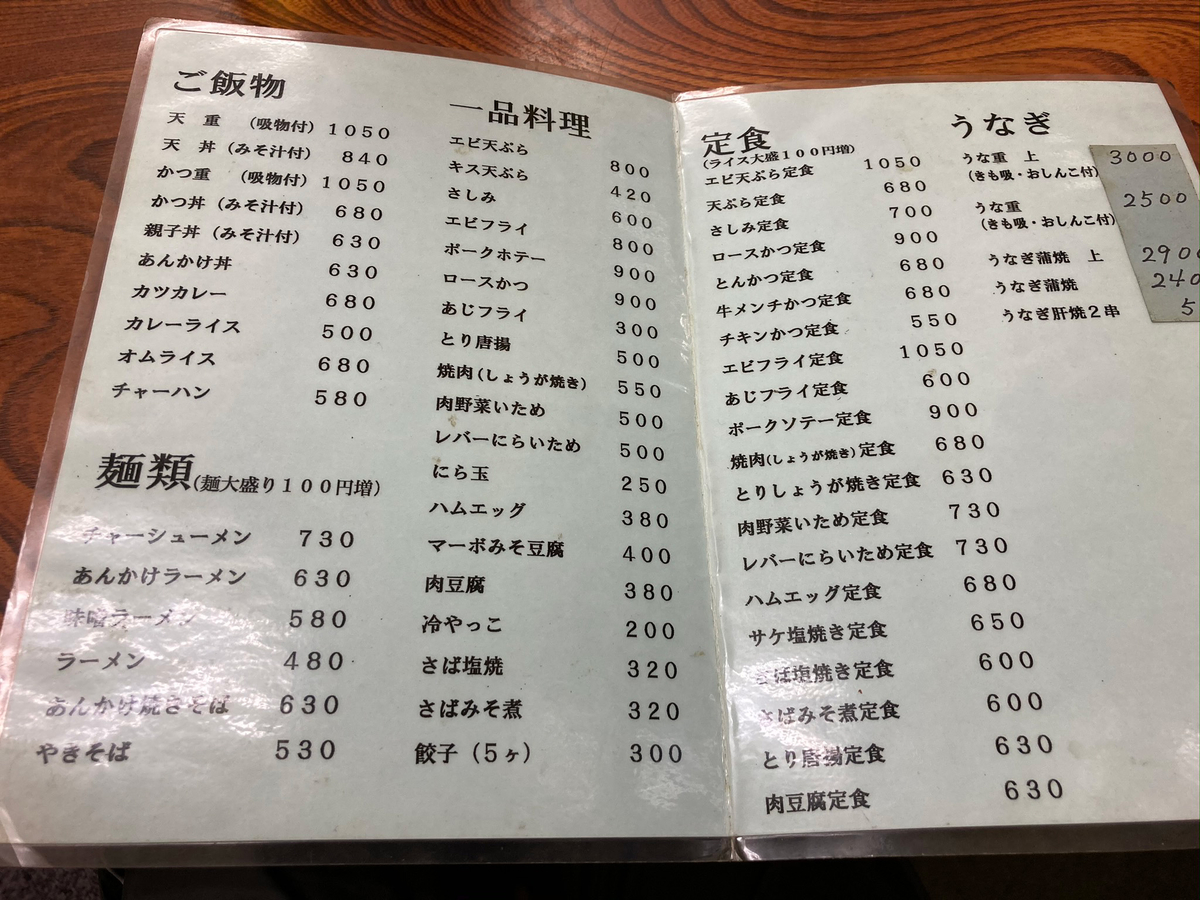 ご飯物
天重 (吸物付) 1050
天丼 (みそ汁付) 840
かつ重 (吸物付) 1050
かつ丼 (みそ汁付) 680
親子丼 (みそ汁付) 630
あんかけ丼 630
カツカレー 680
カレーライス 500
オムライス 680
チャーハン 580
麺類(麺大盛り100円増)
チャーシューメン 730
あんかけラーメン 630
味噌ラーメン 580
ラーメン 480
あんかけ焼きそば 630
やきそば 530
一品料理
エビ天ぷら 800
キス天ぷら 420
さしみ 600
エビフライ 800
ポークホテー 900
ロースかつ 900
あじフライ 300
とり唐揚 500
焼肉(しょうが焼き) 550
肉野菜いため 500
レバーにらいため 500
にら玉 250
ハムエッグ 380
マーボみそ豆腐 400
肉豆腐 380
冷やっこ 200
さば塩焼 320
さばみそ煮 320
餃子(5ヶ) 300
定食
(ライス大盛100円増)
エビ天ぷら定食 1050
天ぷら定食 680
さしみ定食 700
ロースかつ定食 900
とんかつ定食 680
牛メンチかつ定食 680
チキンかつ定食 550
エビフライ定食 1050
あじフライ定食 600
ポークソテー定食 900
焼肉(しょうが焼き)定食 680
とりしょうが焼き定食 630
肉野菜いため定食 730
レバーにらいため定食 730
ハムエッグ定食 680
サケ塩焼き定食 650
さば塩焼き定食 600
さばみそ煮定食 600
とり唐揚定食 630
肉豆腐定食 630
うなぎ
うな重 上 3000
(きも吸・おしんこ付)
うな重 2500
(きも吸・おしんこ付)
うなぎ蒲焼 上 2900
うなぎ蒲焼 240
うなぎ肝焼2串 5